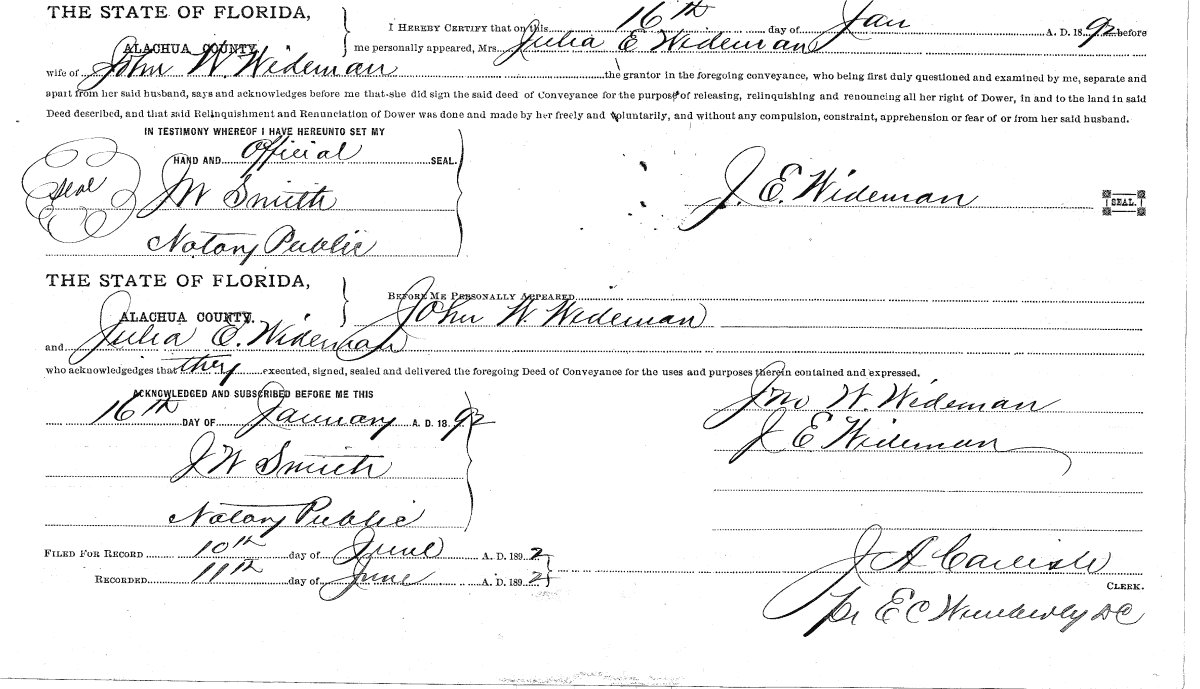 THE STATE OF FLORIDA,
ALACHUA COUNTY.
I HEREBY CERTIFY that on this 16th day of Jan A. D. 1892 before
me personally appeared, Mrs. Julia E Wideman
wife of John W Wideman the grantor in the foregoing conveyance, who being first duly questioned and examined by me, separate and
apart from her said husband, says and acknowledges before me that she did sign the said deed of Conveyance for the purpose of releasing, relinquishing and renouncing all her right of Dower, in and to the land in said
Deed described, and that said Relinquishment and Renunciation of Dower was done and made by her freely and voluntarily, and without any compulsion, constraint, apprehension or fear of or from her said husband.
IN TESTIMONY WHEREOF I HAVE HEREUNTO SET MY
HAND AND Official SEAL.
Seal
J W Smith
J. E. Wideman SEAL.
Notary Public
THE STATE OF FLORIDA,
ALACHUA COUNTY.
BEFORE ME PERSONALLY APPEARED
John W. Wideman
and Julia E. Wideman
who acknowledgedges that they executed, signed, sealed and delivered the foregoing Deed of Conveyance for the uses and purposes therein contained and expressed.
ACKNOWLEDGED AND SUBSCRIBED BEFORE ME THIS
16th DAY OF January A. D. 1892
Jno W. Wideman
J E Wideman
J W Smith
Notary Public
FILED FOR RECORD 10th day of June A. D. 1892
RECORDED 11th day of June A. D. 1892
J A Carlisle
CLERK.
pr E C Wimberly DC